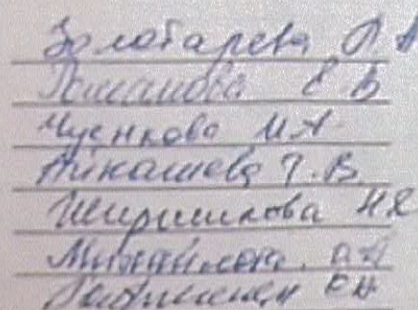 Золотарева Л А
Романова Е В
Чуенкова И А
Айнашева Г. В.
Ширшикова Н Я
Михайлова